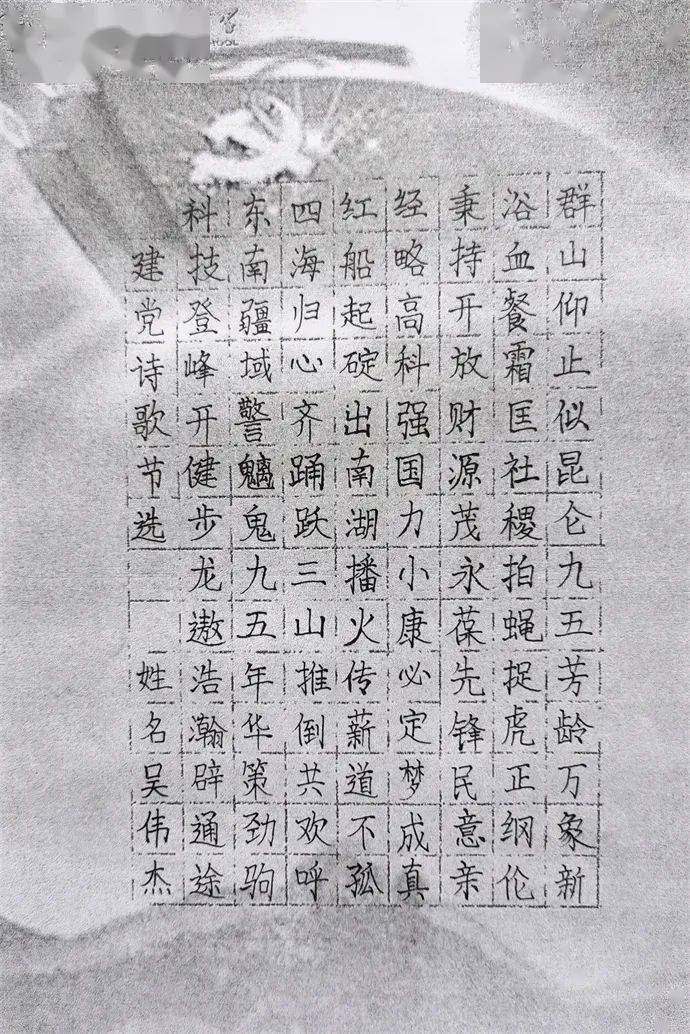 学
OOL
群山仰止似昆仑九五芳龄万象新
浴血餐霜匡社稷拍蝇捉虎正纲伦
秉持开放财源茂永葆先锋民意亲
经略高科强国力小康必定梦成真
红船起碇出南湖播火传薪道不孤
四海归心齐踊跃三山推倒共欢呼
东南疆域警魑鬼九五年华策劲驹
科技登峰开健步龙遨浩瀚辟通途
建党诗歌节选 姓名吴伟杰